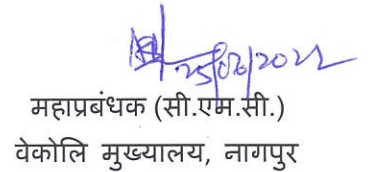 25/02/2022
महाप्रबंधक (सी.एम.सी.)
वेकोलि मुख्यालय, नागपुर